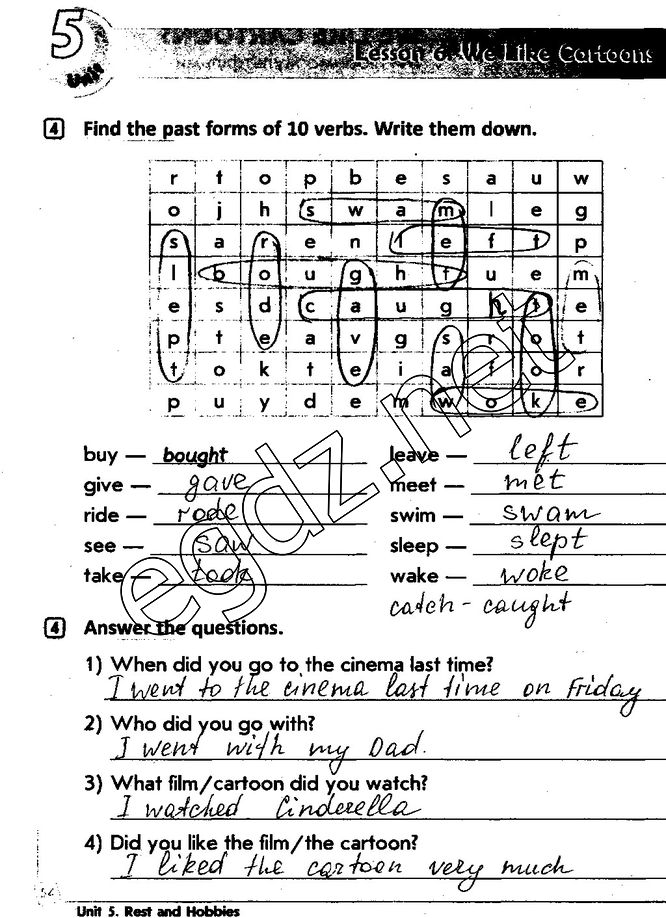 5
Unit
Lesson 6. We Like Cartoons
4 Find the past forms of 10 verbs. Write them down.
r t o p b e s a u w
o j h s w a m l e g
s a r e n l e f t p
l b o u g h t u e m
e s d c a u g h t e
p t e a v g s r o t
t o k t e i a f o r
p u y d e m w o k e
buy — bought
leave — left
give — gave
meet — met
ride — rode
swim — swam
see — saw
sleep — slept
take — took
wake — woke
catch - caught
egdz.net
4 Answer the questions.
1) When did you go to the cinema last time?
I went to the cinema last time on Friday
2) Who did you go with?
I went with my Dad.
3) What film/cartoon did you watch?
I watched Cinderella
4) Did you like the film/the cartoon?
I liked the cartoon very much
54
Unit 5. Rest and Hobbies